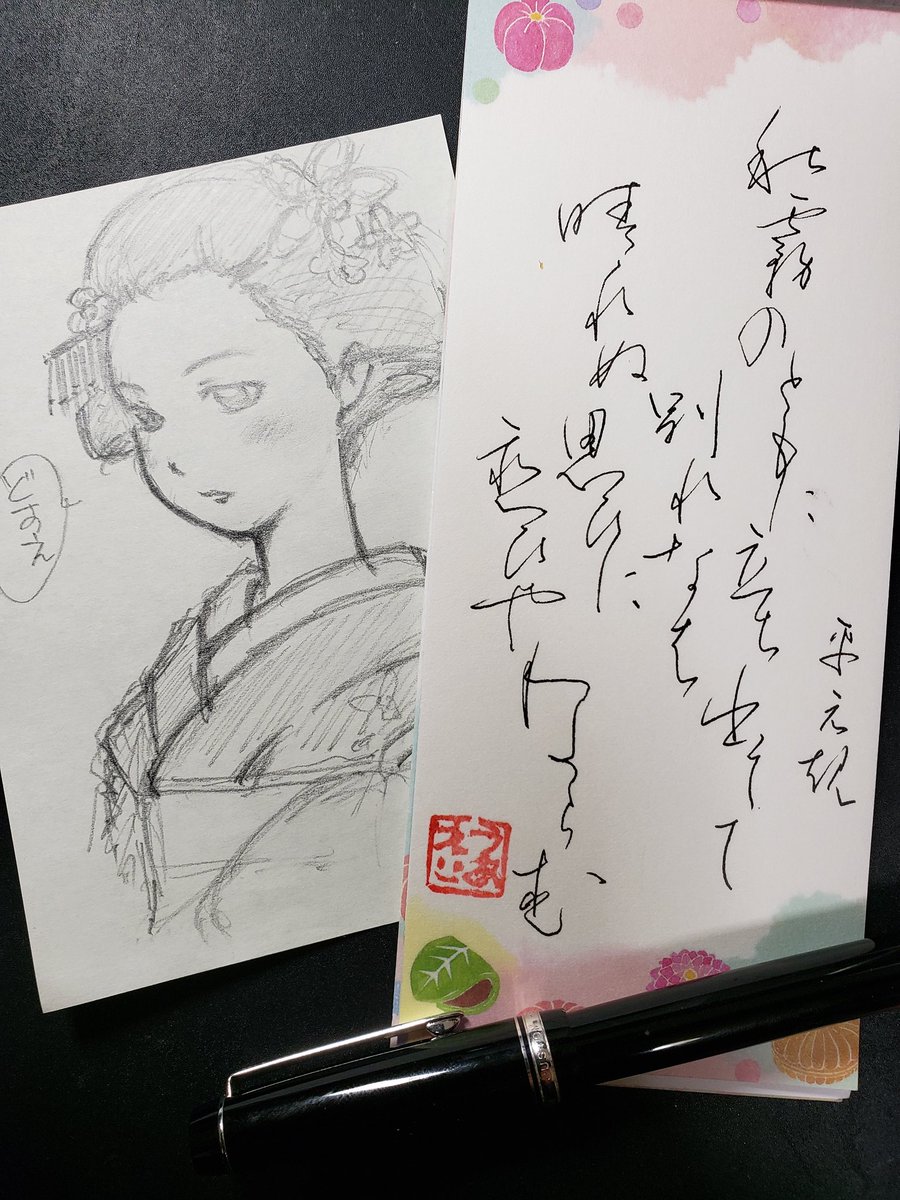 平元規
秋霧のともに
立ち出てて
別れなは
晴れぬ思ひに
恋ひやわたらむ
どすえ